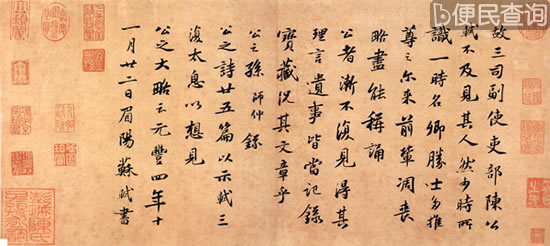 故三司副使吏部陳公
軾不及見其人然少時所
識一時名卿勝士多推
尊之尔來前輩凋喪
略盡能稱誦
公者漸不復見得其
理言遺事皆當記錄
寶藏況其文章乎
公之孫師仲錄
公之詩廿五篇以示軾三
復太息以想見
公之大略云元豐四年十
一月廿二日眉陽蘇軾書
便民查询